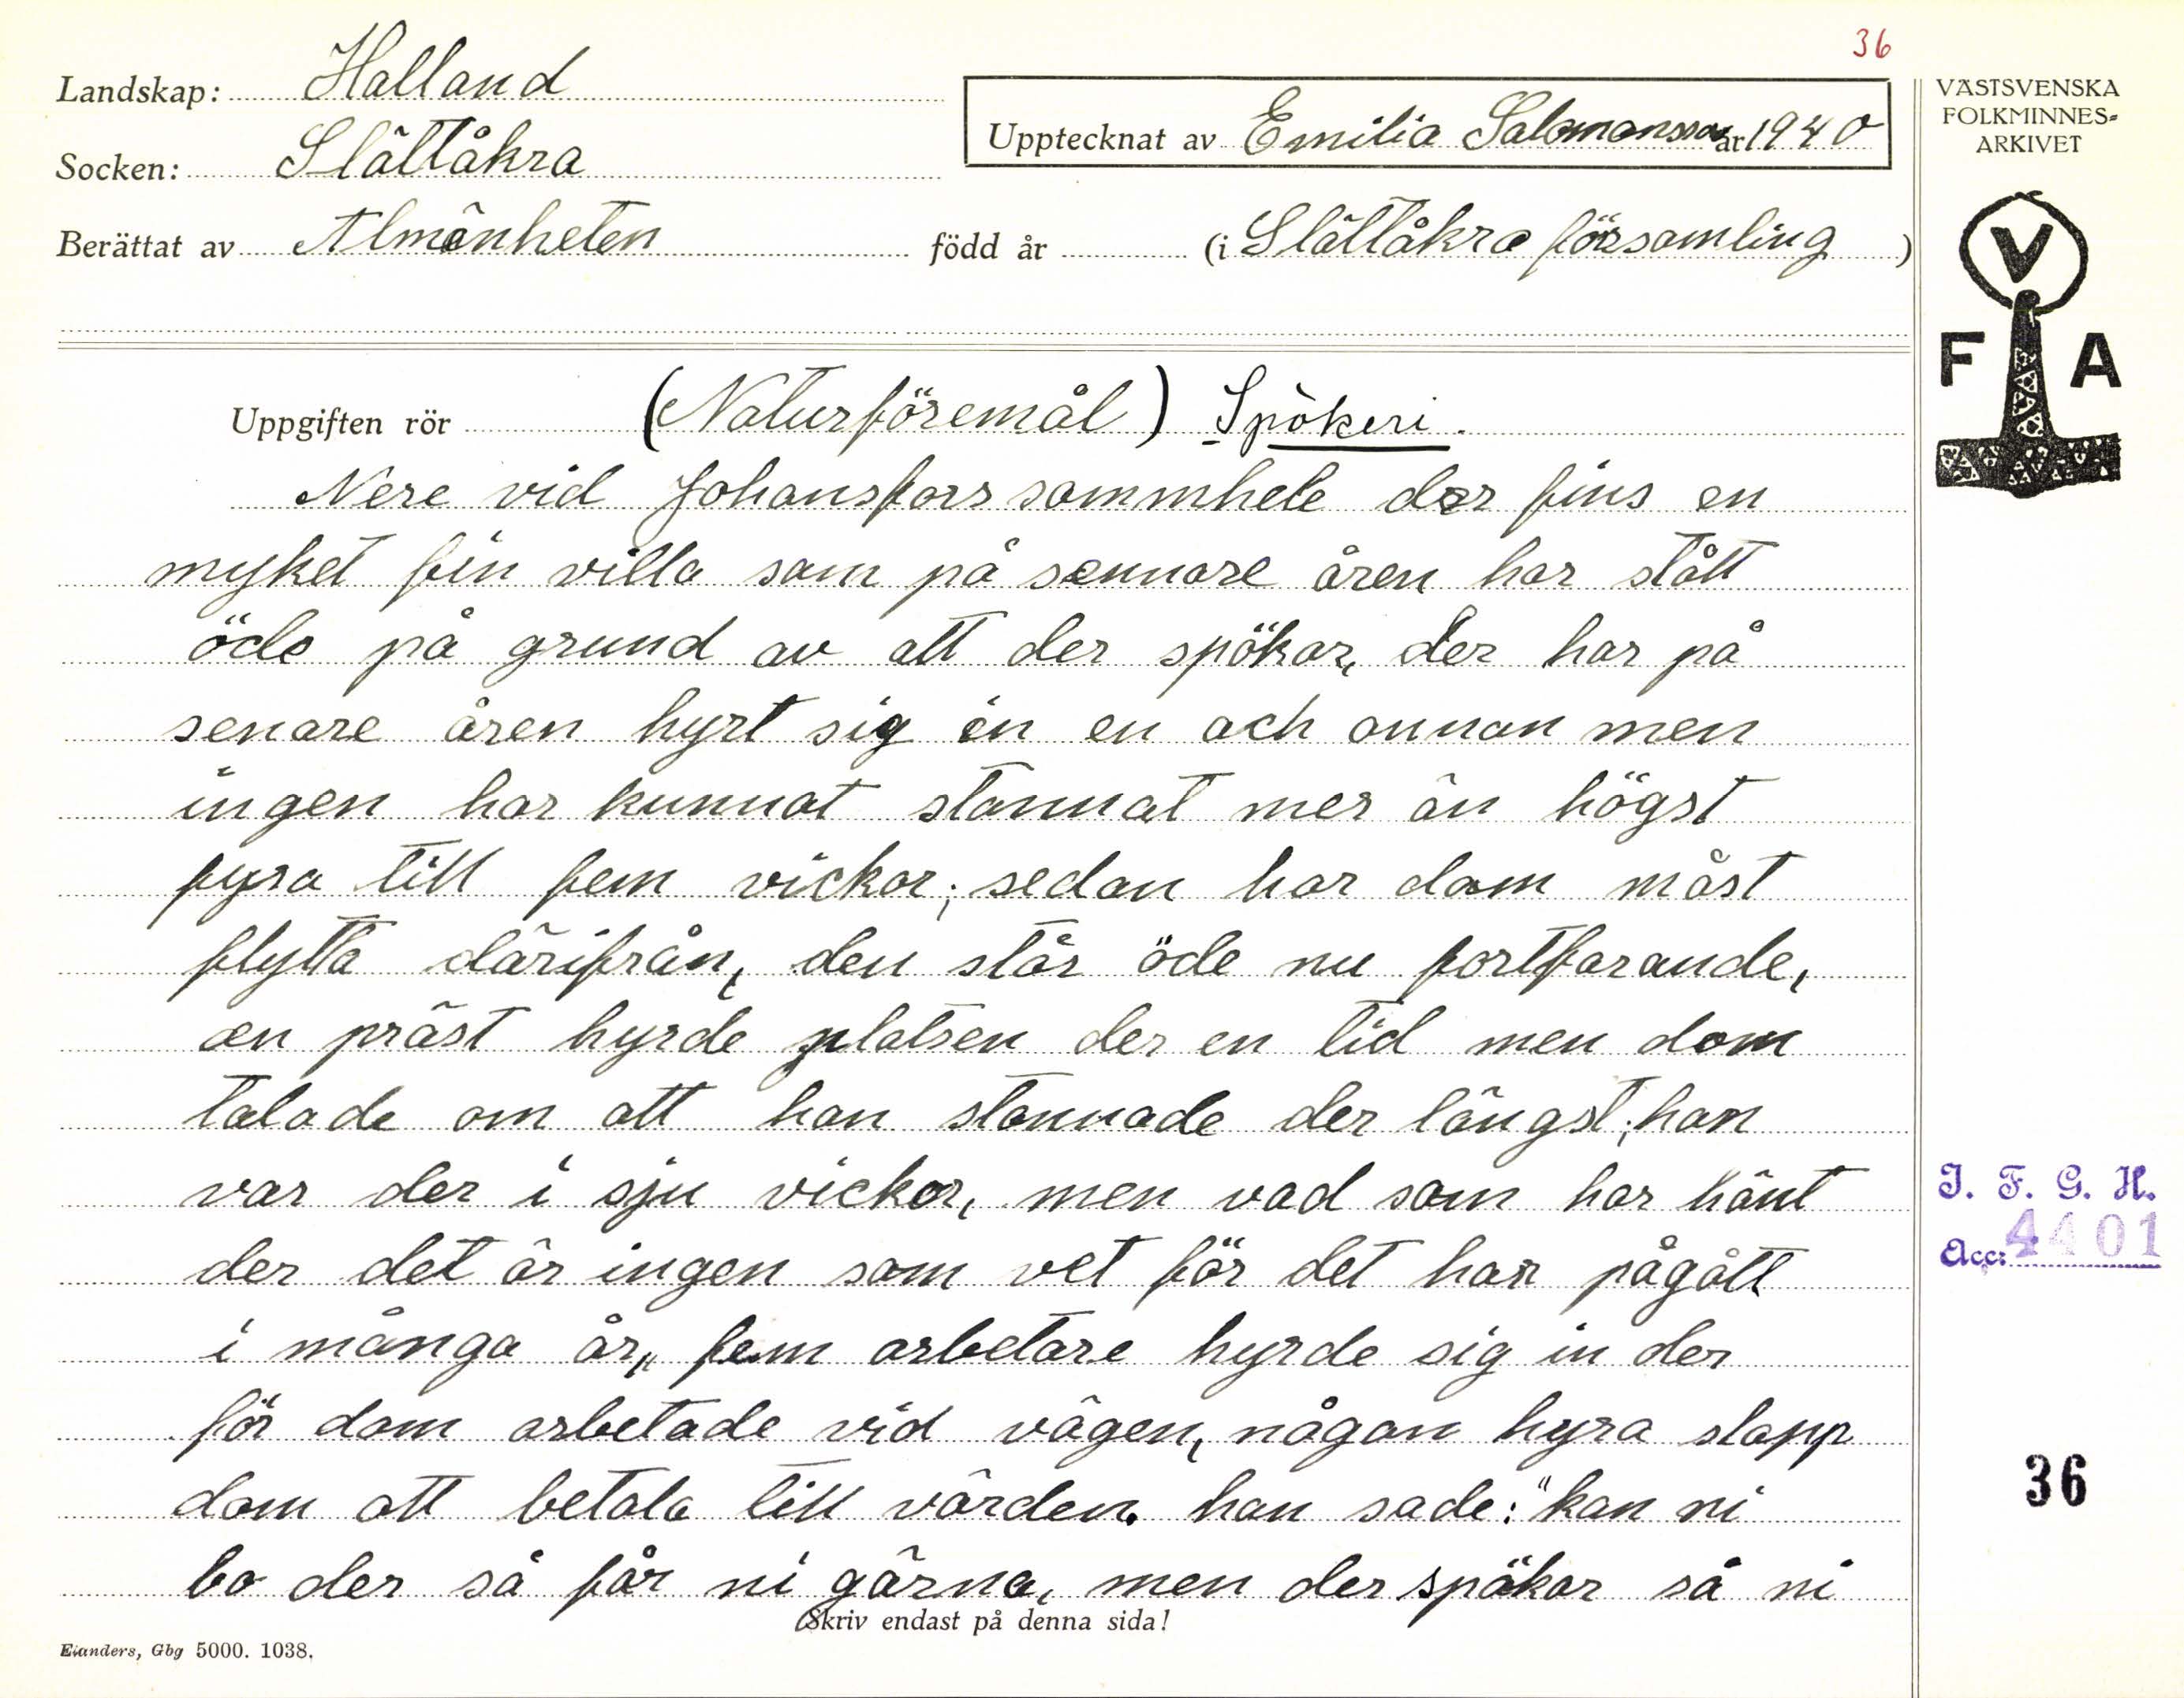 36
Landskap: Halland
Socken: Slättåkra
Berättat av Almänheten född år (i Slättåkra församling)
Upptecknat av Emilia Salomonsson år 1940
VÄSTSVENSKA
FOLKMINNES-
ARKIVET
V
F A
Uppgiften rör (Naturföremål) Spökeri.
Nere vid Johansfors sammhele der fins en
myket fin villa som på sennare åren har stått
öde på grund av att der spökar, der har på
senare åren hyrt sig in en och annan men
ingen har kunnat stannat mer än högst
fyra till fem vickor; sedan har dom måst
flytta därifrån, den står öde nu fortfarande,
en präst hyrde platsen der en tid men dom
talade om att han stannade der längst; han
var der i sju vickor, men vad som har hänt
der det är ingen som vet för det har pågått
i många år,, fem arbetare hyrde sig in der
för dom arbetade vid vägen, någon hyra slapp
dom att betala till värden. han sade: "kan ni
bo der så får ni gärna, men der spökar så ni
Skriv endast på denna sida!
Elanders, Gbg 5000. 1038.
I. F. G. H.
Acc. 4401
36